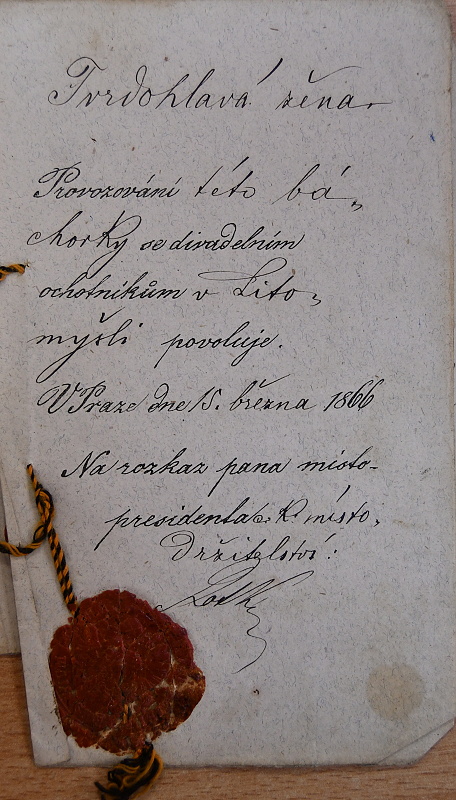 Tvrdohlavá žena.
Provozování této bá„
chorky se divadelním
ochotníkům v Lito„
myšli povoluje.
V Praze dne 15. března 1866
Na rozkaz pana místo-
presidenta c. k. místo„
držitelství: